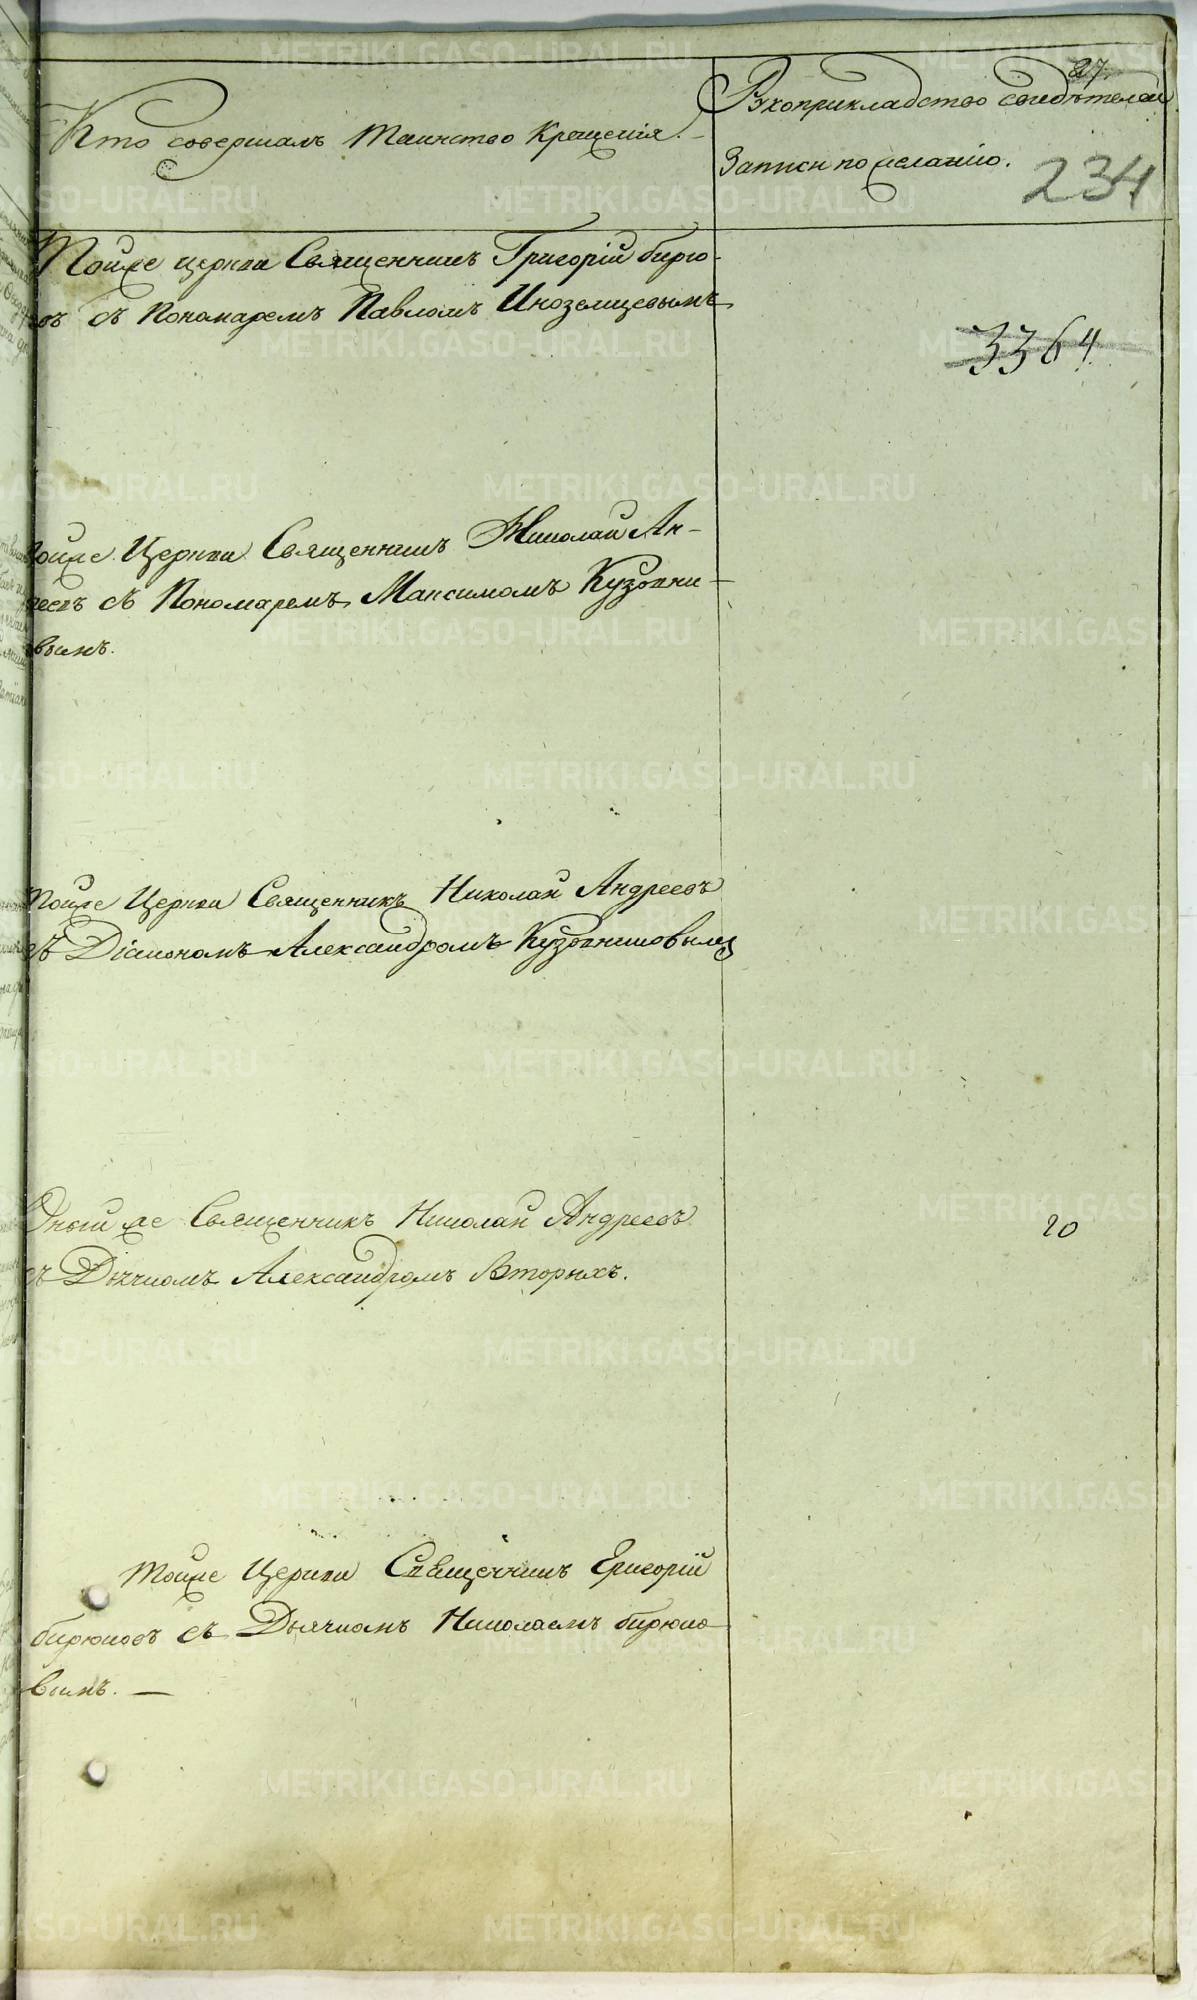 27.
Кто совершалъ таинство крещенія.
Рукоприкладство свидѣтелей
записи по желанію.
234
Тойже церкви Священникъ Григорій бирю-
овъ съ Пономаремъ Павломъ Иноземцевымъ
3364
тойже Церкви Священникъ Николай Ан-
реевъ съ Пономаремъ Максимомъ Кузовни-
вымъ.
тойже Церкви Священникъ Николай Андреевъ
съ Діакономъ Александромъ Кузовниковымъ
Оный же Священникъ Николай Андреевъ
съ Дьячкомъ Александромъ Вторыхъ.
20
тойже Церкви Священникъ Григорій
бирюковъ съ Дьячкомъ Николаемъ бирюко-
вымъ. —
METRIKI.GASO-URAL.RU